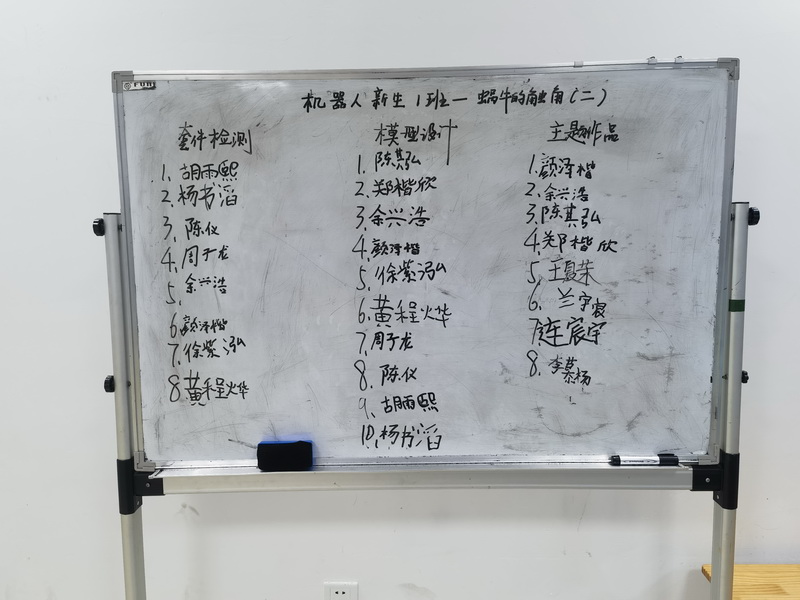 机器人新生1班—蜗牛的触角(二)
套件检测
1、胡雨熙
2、杨书滔
3、陈仪
4、周于龙
5、余兴浩
6、颜泽楷
7、徐紫泓
8、黄程烨
模型设计
1、陈其弘
2、郑楷欣
3、余兴浩
4、颜泽楷
5、徐紫泓
6、黄程烨
7、周于龙
8、陈仪
9、胡雨熙
10、杨书滔
主题作品
1、颜泽楷
2、余兴浩
3、陈其弘
4、郑楷欣
5、王
6、兰宇宸
7、连宸宇
8、李慕杨